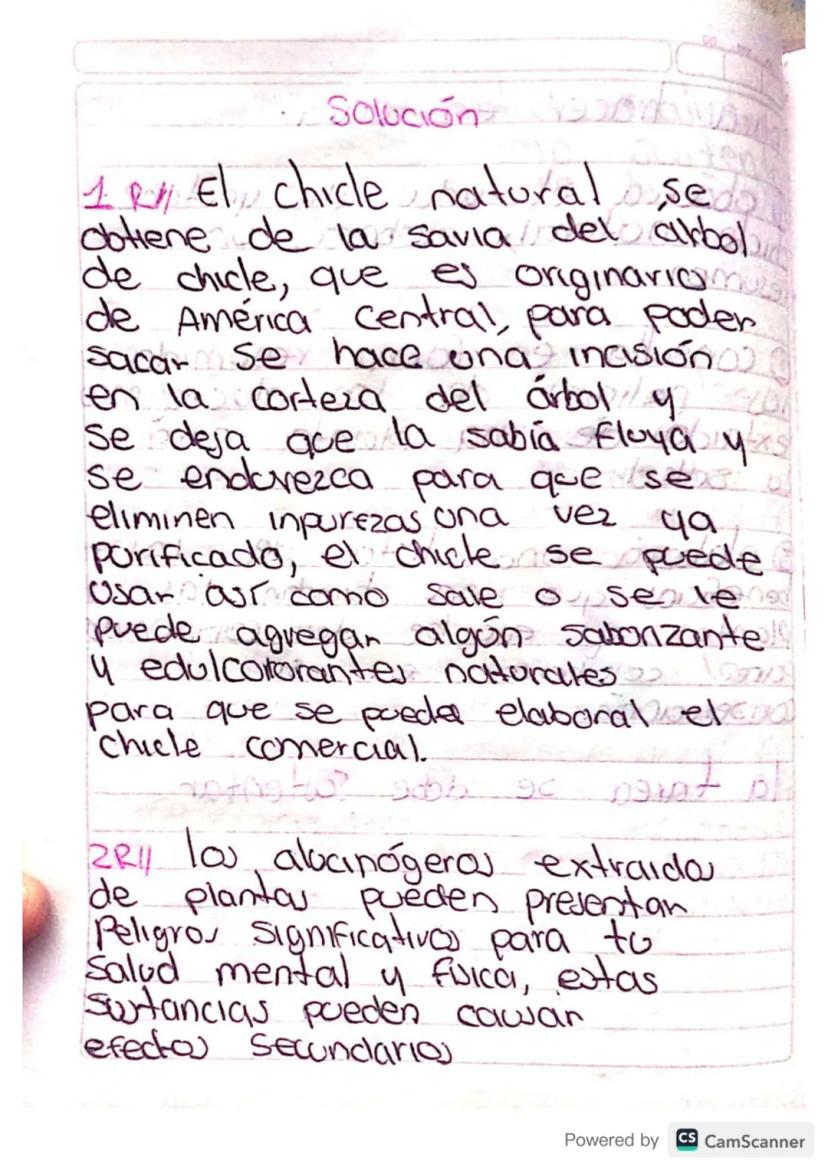 Solución
1 R// El chicle natural se
obtiene de la savia del árbol
de chicle, que es originario
de América Central, para poder
sacar se hace una incisión
en la corteza del árbol y
se deja que la sabía fluya y
se endurezca para que se
eliminen inpurezas una vez ya
purificado, el chicle se puede
usar así como sale o se le
puede agregar algún saborizante
y edulcorantes naturales
para que se pueda elaboral el
chicle comercial.
la tarea se debe
2R// los alucinógeros extraidos
de plantas pueden presentar
Peligros significativos para tu
salud mental y fisica, estas
sustancias pueden causar
efectos secundarios
Powered by CS CamScanner